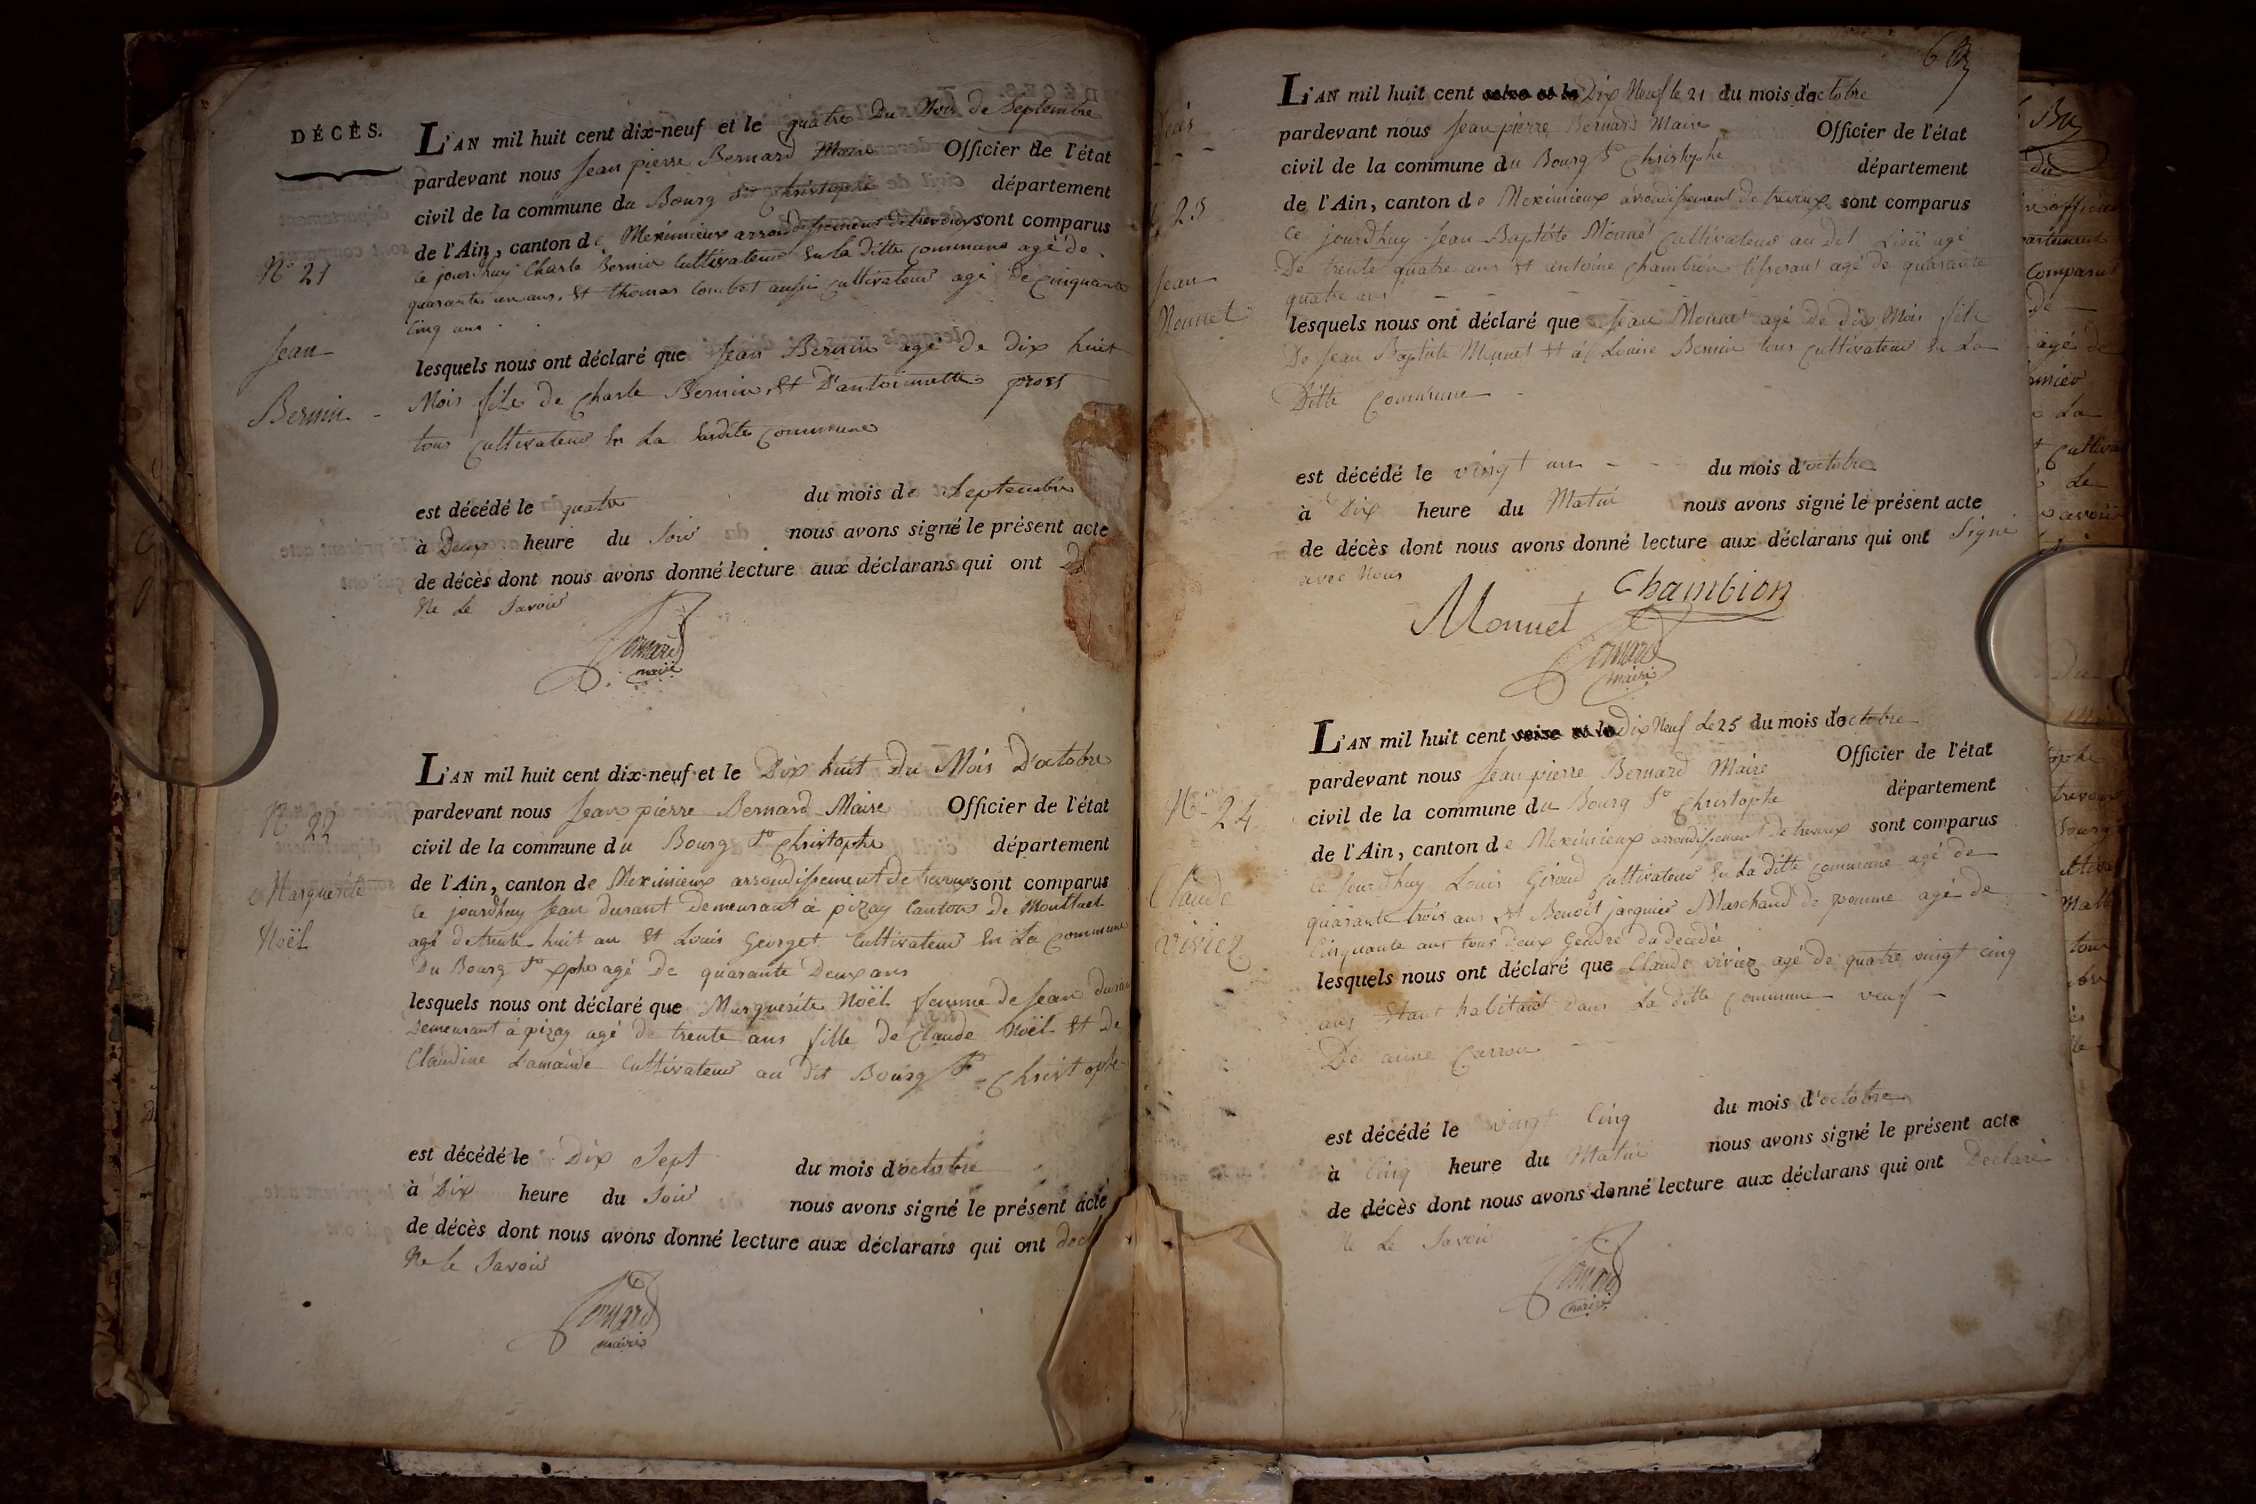 DÉCÈS.
N° 21
Jean
Bernin
L'AN mil huit cent dix-neuf et le quatre Du Mois de Septembre
pardevant nous Jean pierre Bernard Maire Officier de l'état
civil de la commune du Bourg St Christophe département
de l'Ain, canton de Meximieux arrondissement de trevoux sont comparus
ce jourdhuy Charle Bernin Cultivateur En la ditte Commune agé de
quarante un ans, Et thomas Combet aussi Cultivateur agé De Cinquante
Cinq ans
lesquels nous ont déclaré que Jean Bernin agé de dix huit
Mois fils de Charle Bernin, Et D'antoinette prost
tous Cultivateur En La Susdite Commune
est décédé le quatre du mois de Septembre
à Deux heure du Soir nous avons signé le présent acte
de décès dont nous avons donné lecture aux déclarans qui ont
Ne Le Savoir
Bernard
maire
N° 22
Marguerite
Noël
L'AN mil huit cent dix-neuf et le Dix huit Du Mois D'octobre
pardevant nous Jean pierre Bernard Maire Officier de l'état
civil de la commune du Bourg St Christophe département
de l'Ain, canton de Meximieux arrondissement de trevoux sont comparus
ce jourdhuy Jean durant Demeurant à pizay Canton de Montluel
agé de trente huit an Et Louis Georget, Cultivateur En La Commune
Du Bourg St Xphe agé De quarante Deux ans
lesquels nous ont déclaré que Marguerite Noël femme de Jean durant
Demeurant à pizay agé de trente ans fille de Claude Noël Et De
Claudine Lamande Cultivateur au dit Bourg St Christophe
est décédé le Dix Sept du mois d'octobre
à Dix heure du Soir nous avons signé le présent acte
de décès dont nous avons donné lecture aux déclarans qui ont
Ne le Savoir
Bernard
maire
Décès
23
Jean
Monnet
L'AN mil huit cent Dix Neuf le 21 du mois d'octobre
pardevant nous Jean pierre Bernard Maire Officier de l'état
civil de la commune du Bourg St Christophe département
de l'Ain, canton de Meximieux arrondissement de trevoux sont comparus
ce jourdhuy Jean Baptiste Monnet Cultivateur au Dit Lieu agé
De trente quatre ans Et antoine Chambion tisserant agé de quarante
quatre ans
lesquels nous ont déclaré que Jean Monnet agé De dix Mois fils
De Jean Baptiste Monnet Et de Louise Bernin tous Cultivateur En La
Ditte Commune
est décédé le vingt un du mois d'octobre
à Dix heure du Matin nous avons signé le présent acte
de décès dont nous avons donné lecture aux déclarans qui ont Signé
avec Nous
Chambion
Monnet
Bernard
maire
N° 24
Claude
viviez
L'AN mil huit cent Dix Neuf Le 25 du mois d'octobre
pardevant nous Jean pierre Bernard Maire Officier de l'état
civil de la commune du Bourg St Christophe département
de l'Ain, canton de Meximieux arrondissement de trevoux sont comparus
ce Jourdhuy Louis Giroud Cultivateur En La ditte Commune agé De
quarante trois ans Et Benoit jarguier Marchand de pomme agé De
Cinquante ans tous Deux Gendre du decedée
lesquels nous ont déclaré que Claude viviez agé De quatre vingt cinq
ans Etant habitant Dans La ditte Commune veuf
De anne Carron
est décédé le vingt Cinq du mois d'octobre
à Cinq heure du Matin nous avons signé le présent acte
de décès dont nous avons donné lecture aux déclarans qui ont Declaré
Ne Le Savoir
Bernard
maire